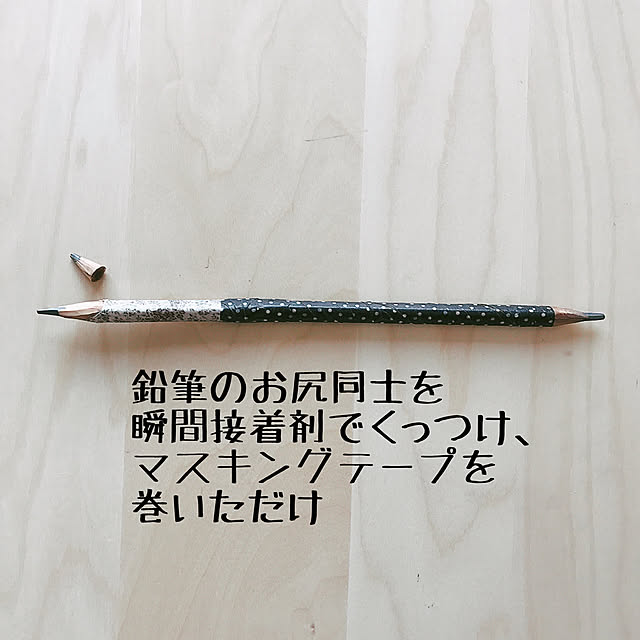 鉛筆のお尻同士を
瞬間接着剤でくっつけ、
マスキングテープを
巻いただけ